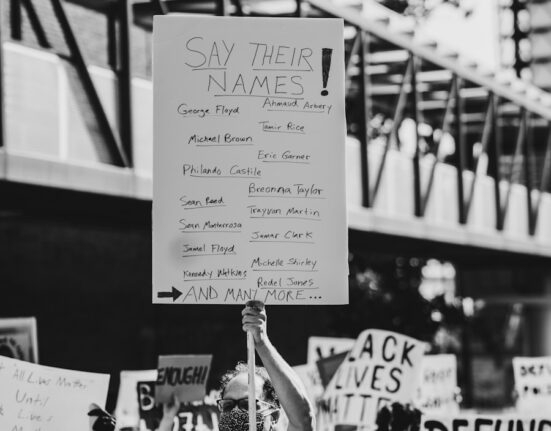 SAY THEIR
NAMES !
George Floyd
Ahmaud Arbery
Tamir Rice
Michael Brown
Eric Garner
Philando Castile
Breonna Taylor
Sean Reed
Trayvon Martin
Sean Monterrosa
Jamar Clark
Jamel Floyd
Michelle Shirley
Kennedy Watkins
Redel Jones
AND MANY MORE...
All Lives Matter
Until
Lives
ENOUGH!
BLACK
LIVES
MATTER